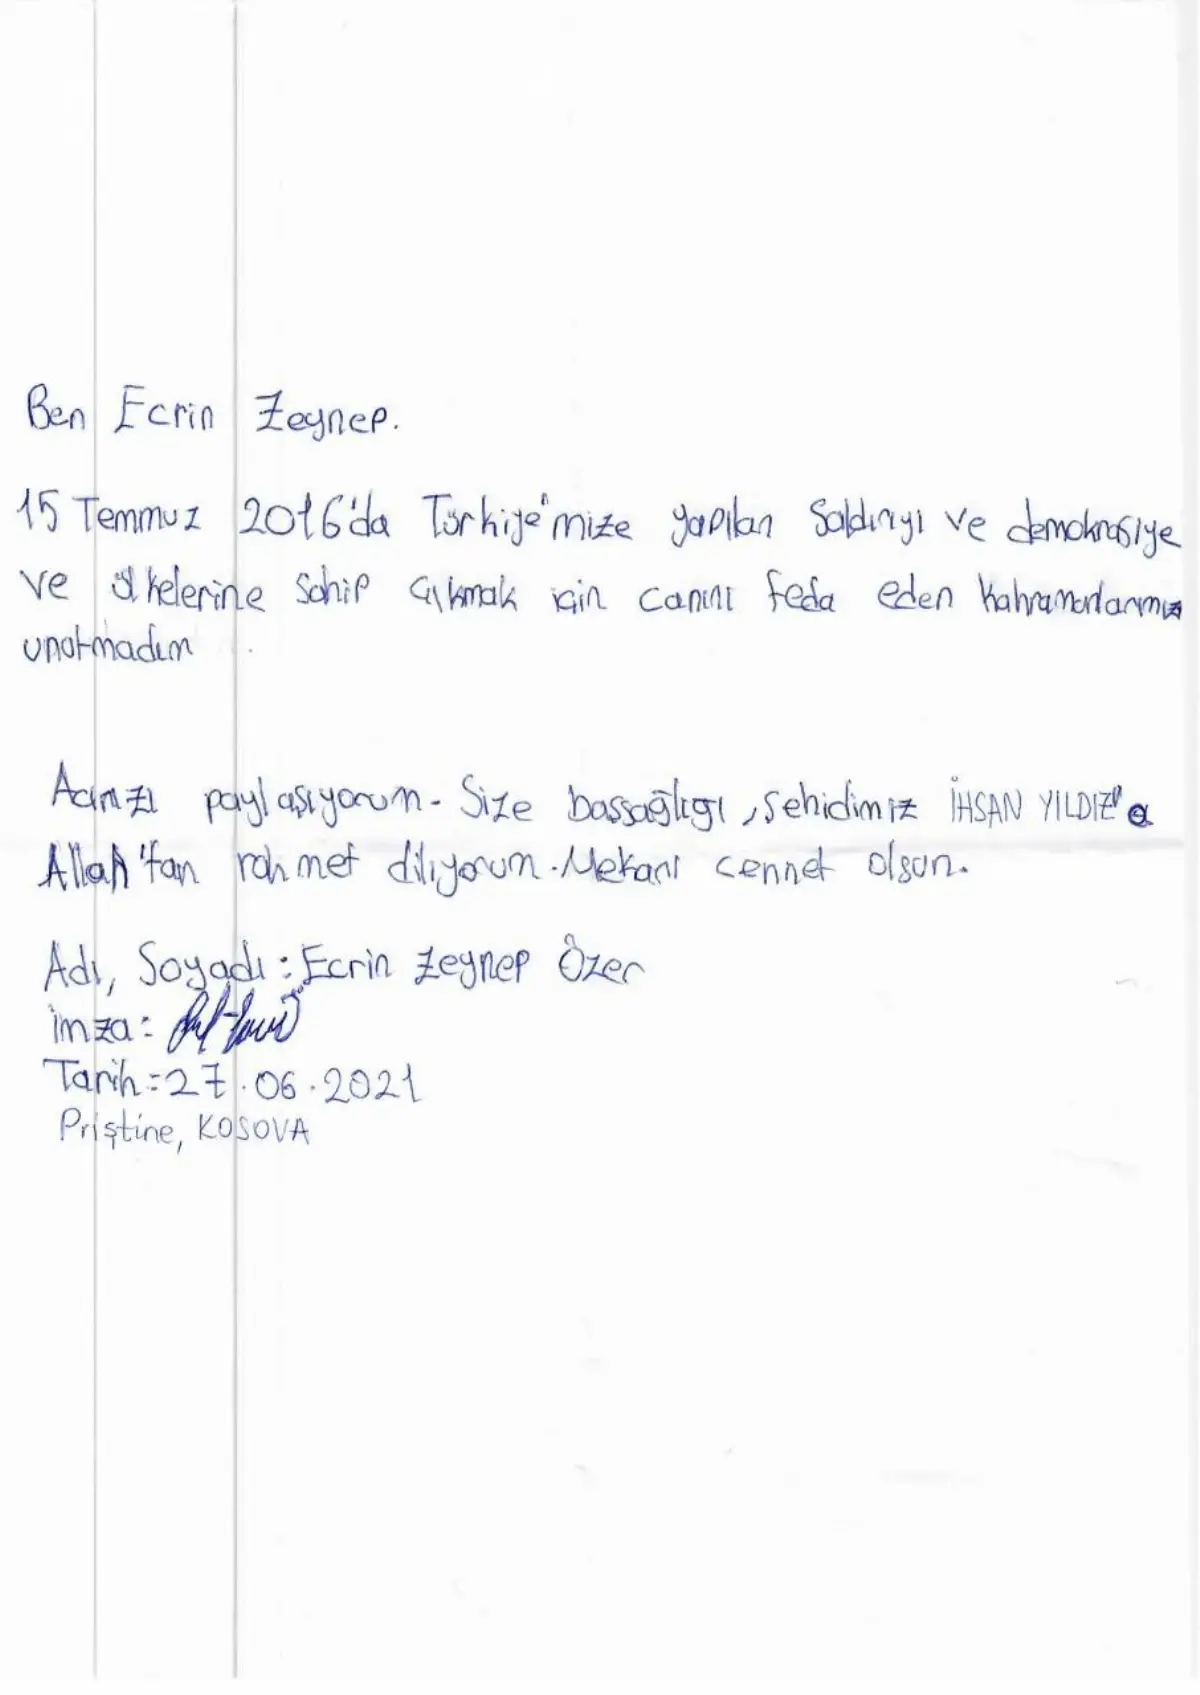 Ben Ecrin Zeynep.
15 Temmuz 2016'da Türkiye'mize yapılan saldırıyı ve demokrasiye
ve ülkelerine sahip çıkmak için canını feda eden kahramanlarımızı
unutmadım
Acınızı paylaşıyorum. Size bassağlıgı, şehidimiz İHSAN YILDIZ'a
Allah'tan rahmet diliyorum. Mekanı cennet olsun.
Adı, Soyadı: Ecrin Zeynep Özer
imza:
Tarih: 27.06.2021
Priştine, KOSOVA